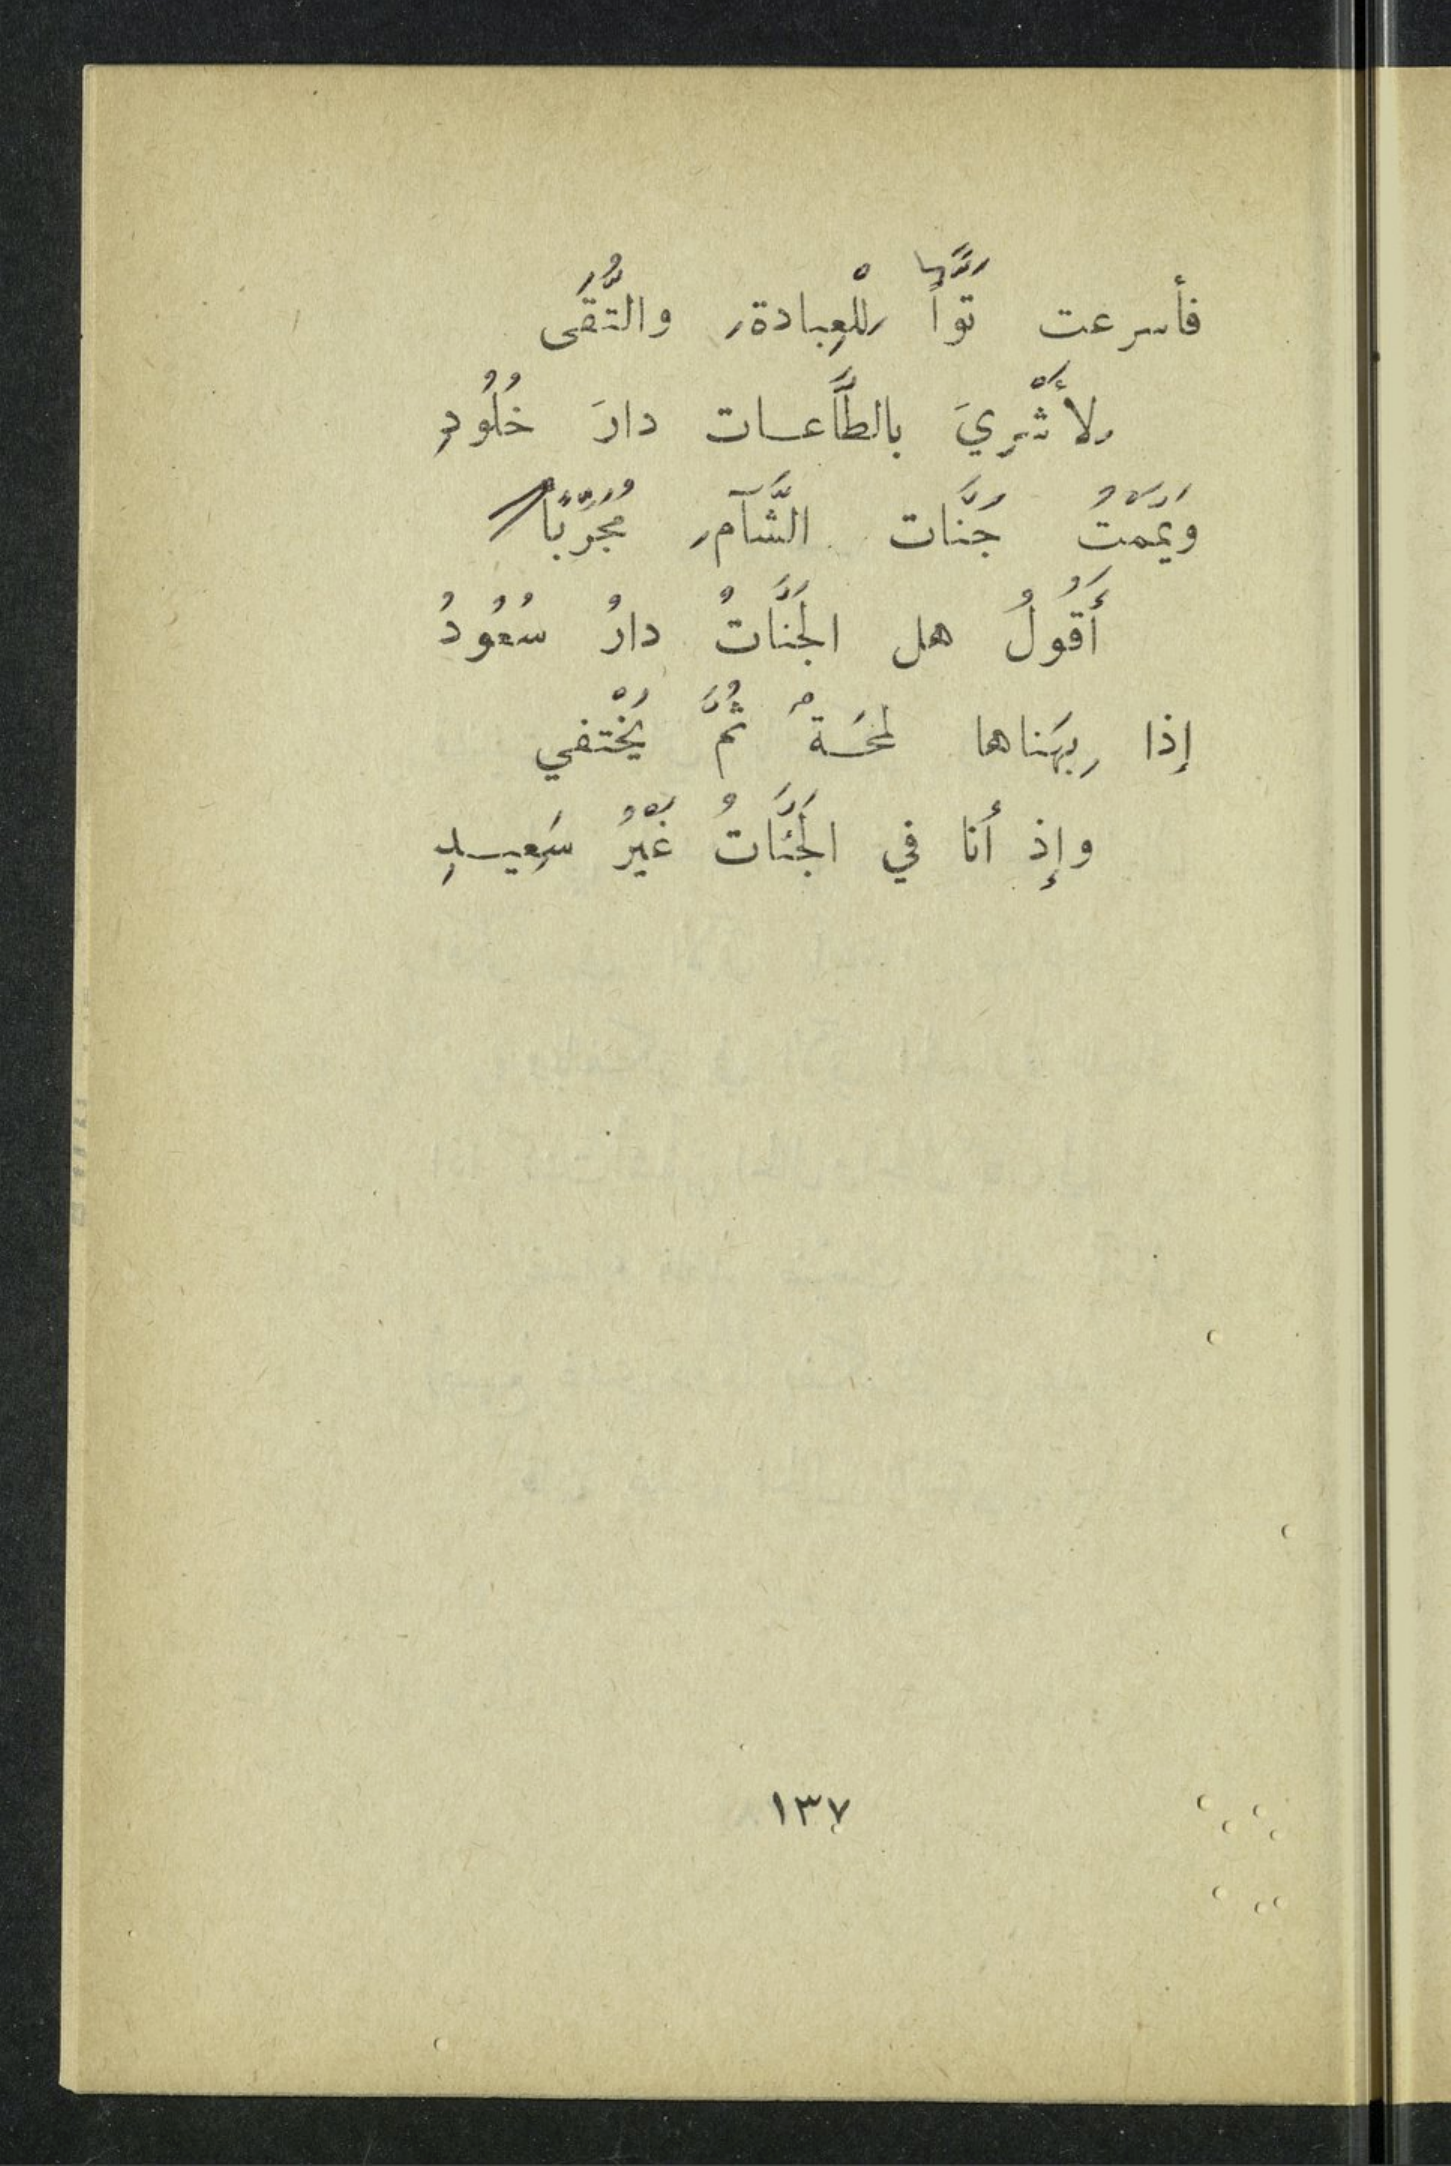 فأسرعت تَوّاً لِلْعِبادةِ والتُّقَى
لأَشْرِيَ بالطَّاعـات دارَ خُلُودِ
وَيَمَّمْتُ جَنَّات الشَّآمِ مُجَرِّبًا
أَقُولُ هل الجَنَّاتُ دارُ سُعُودُ
إذا بِهَناها لمحَـةٌ ثُمَّ يَخْتفي
وإِذ أنا في الجَنَّاتُ غَيْرُ سَعِيـدِ
١٣٧